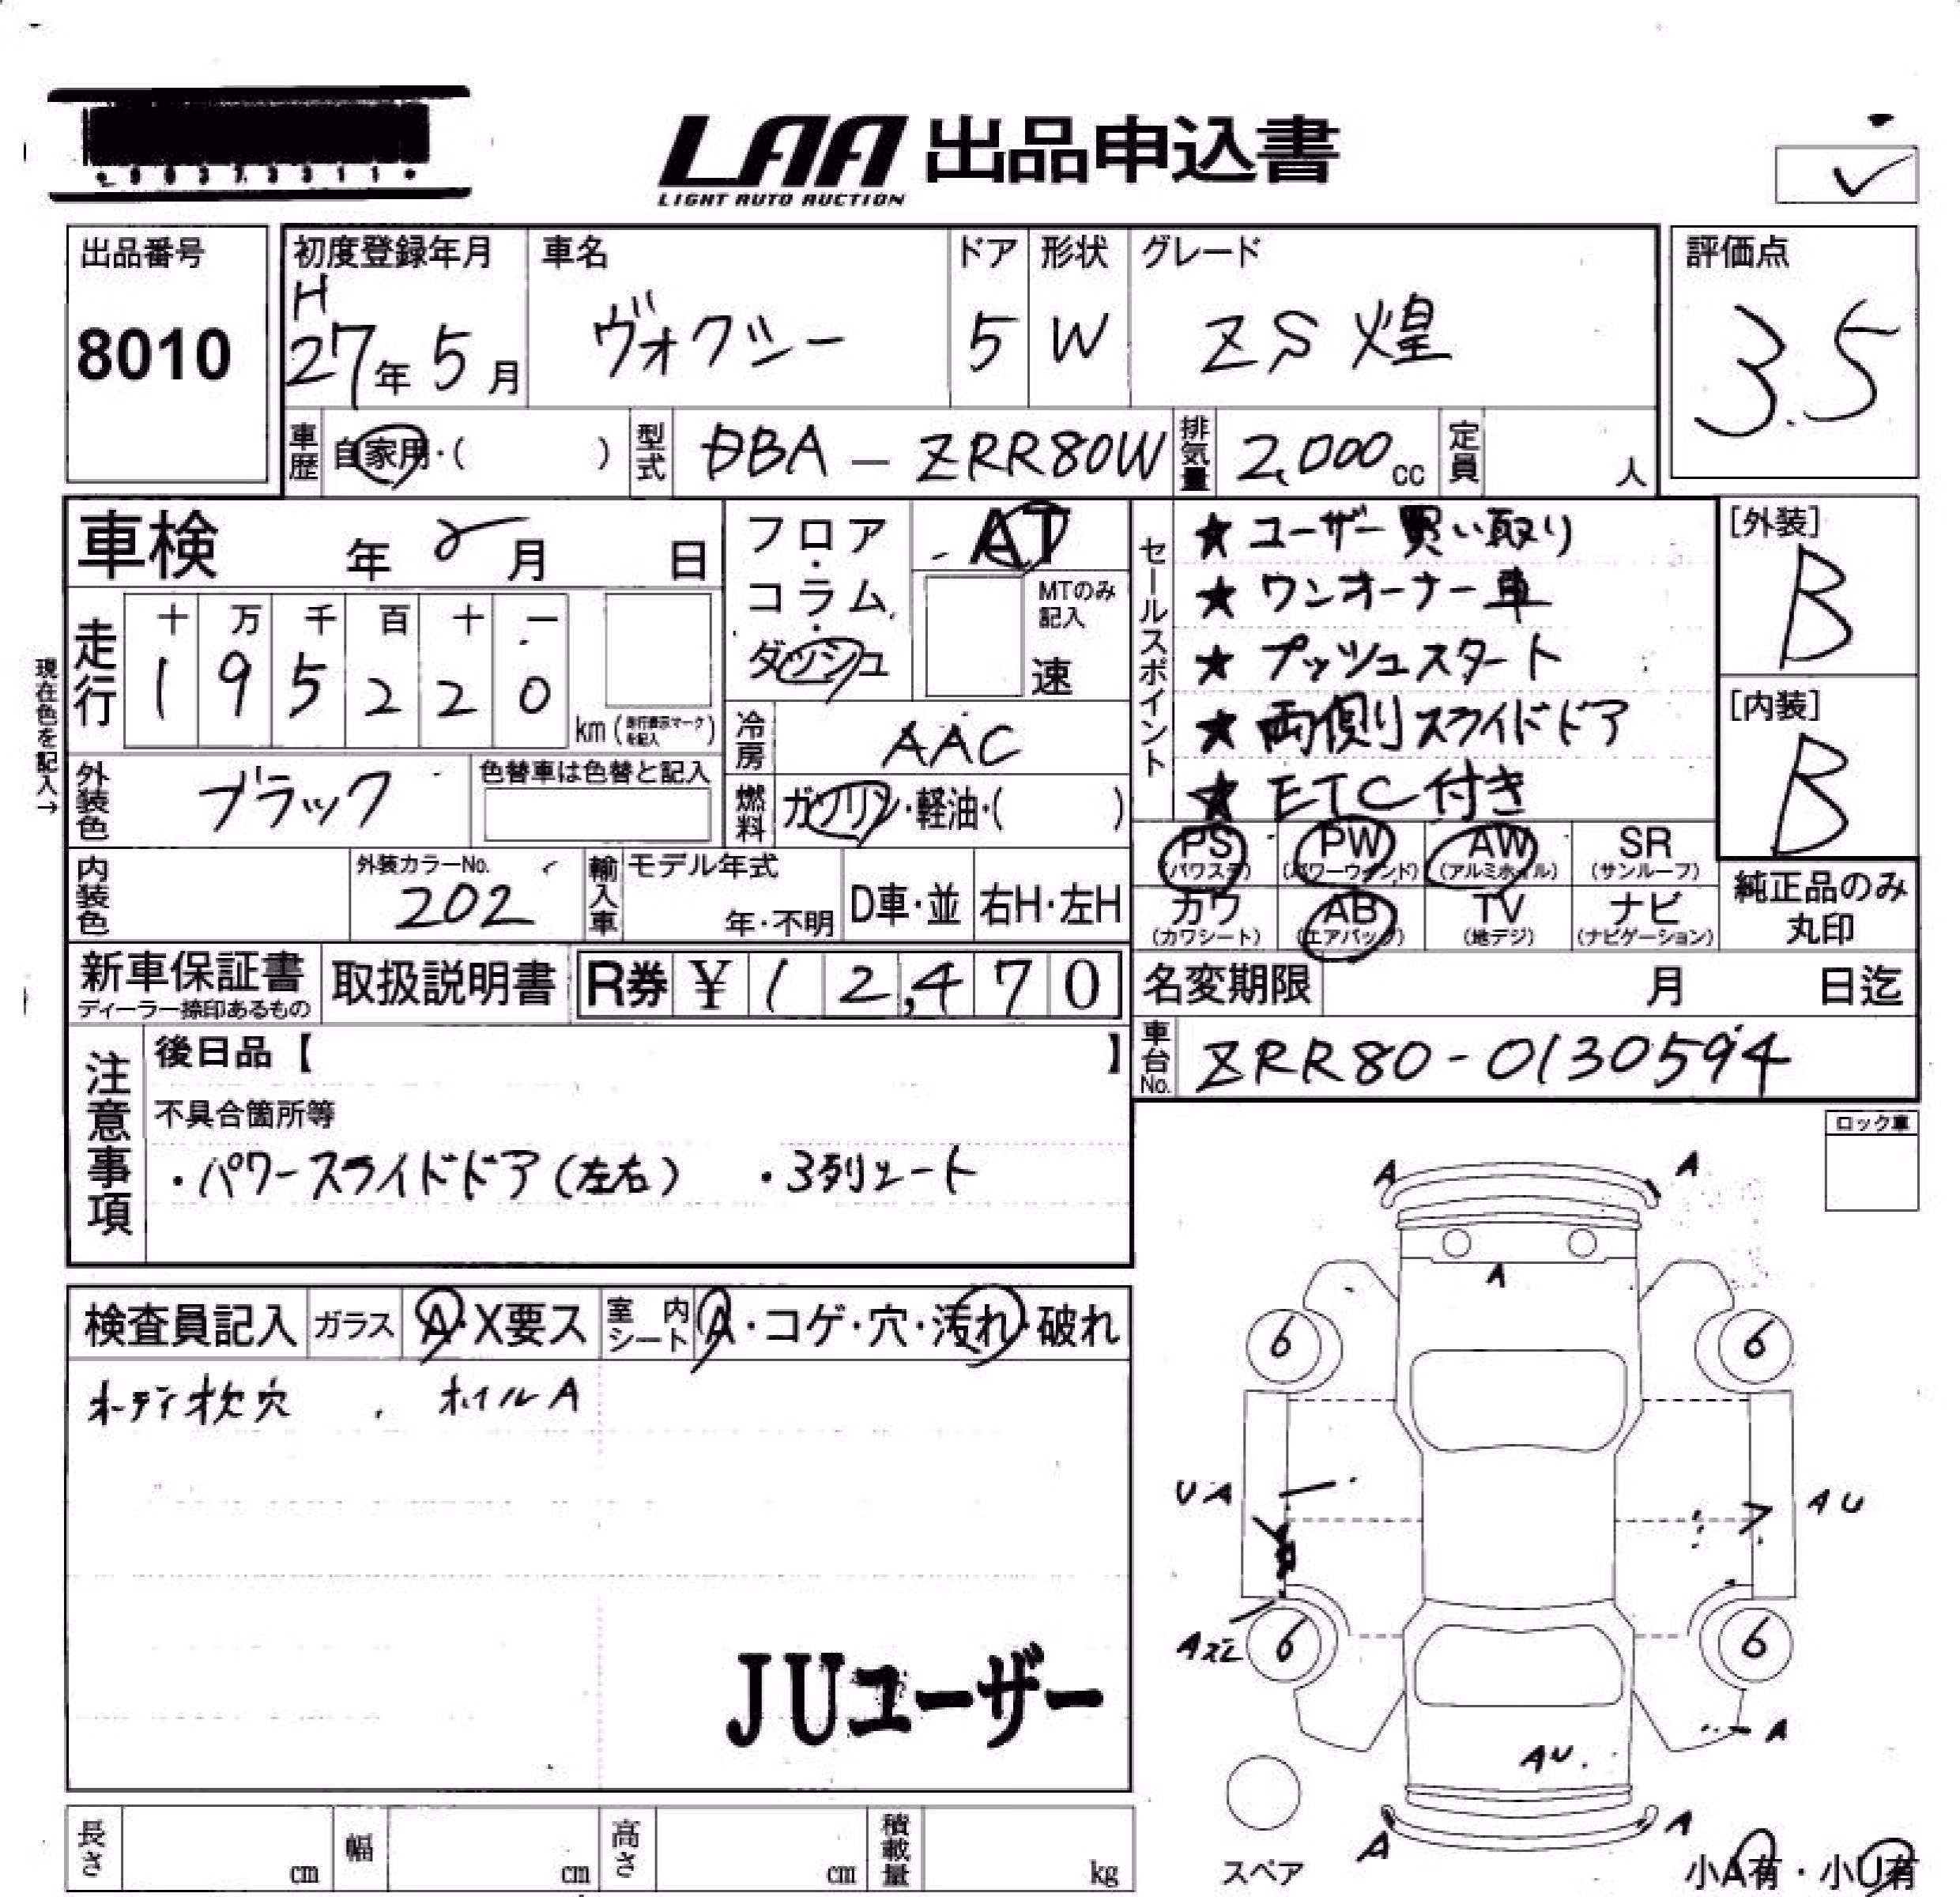 LAA 出品申込書
LIGHT AUTO AUCTION
出品番号
8010
初度登録年月
H
27年 5月
車名
ヴォクシー
ドア
5
形状
W
グレード
ZS 煌
評価点
3.5
車歴
自家用・( )
型式
DBA - ZRR80W
排気量
2,000 cc
定員
人
車検
年 月 日
フロア・
コラム・
ダッシュ
AT
MTのみ
記入
速
セールスポイント
★ ユーザー買い取り
★ ワンオーナー車
★ プッシュスタート
★ 両側スライドドア
★ ETC付き
[外装]
B
[内装]
B
現在色を記入→
走行
十 万 千 百 十 一
1 9 5 2 2 0
km (走行表示マークを記入)
冷房
AAC
燃料
ガソリン・軽油・( )
外装色
ブラック
色替車は色替と記入
内装色
外装カラーNo.
202
輸入車
モデル年式
年・不明
D車・並
右H・左H
PS
(パワステ)
PW
(パワーウインド)
AW
(アルミホイル)
SR
(サンルーフ)
カワ
(カワシート)
AB
(エアバッグ)
TV
(地デジ)
ナビ
(ナビゲーション)
純正品のみ
丸印
新車保証書
ディーラー捺印あるもの
取扱説明書
R券 ¥ 12,470
名変期限
月 日迄
車台No.
ZRR80-0130594
注意事項
後日品【 】
不具合箇所等
・パワースライドドア(左右) ・3列シート
ロック車
検査員記入
ガラス
A・X要ス
室内
シート
A・コゲ・穴・汚れ・破れ
ホイルA
JUユーザー
A
A
A
6
6
UA
AU
6
6
A
AU
A
A
スペア
小A有・小U有
長さ
cm
幅
cm
高さ
cm
積載量
kg